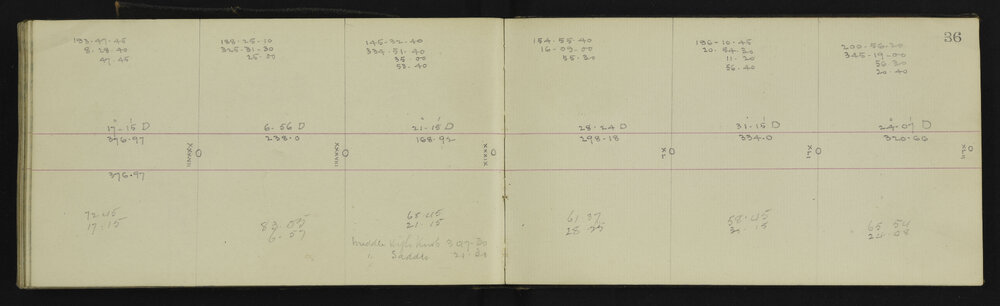 36
193·47·45
8·28·40
47·45
188·25·10
325·31·30
25·07
145·32·40
334·51·40
35·00
53·40
154·55·40
16·09·00
55·30
196·10·45
20·54·30
11·20
56·40
200·56·20
345·19·00
56·30
20·40
17·15 D
6·56 D
21·15 D
28·24 D
31·15 D
24·07 D
376·97
238·0
168·92
298·18
334·0
320·66
XXXVII
XXXVIII
XXXIX
XL
XLI
XLII
376·97
72·45
17·15
83·03
6·57
65·45
21·15
middle high knob
" Saddle 21·30
61·37
28·25
58·45
31·15
65·54
24·08